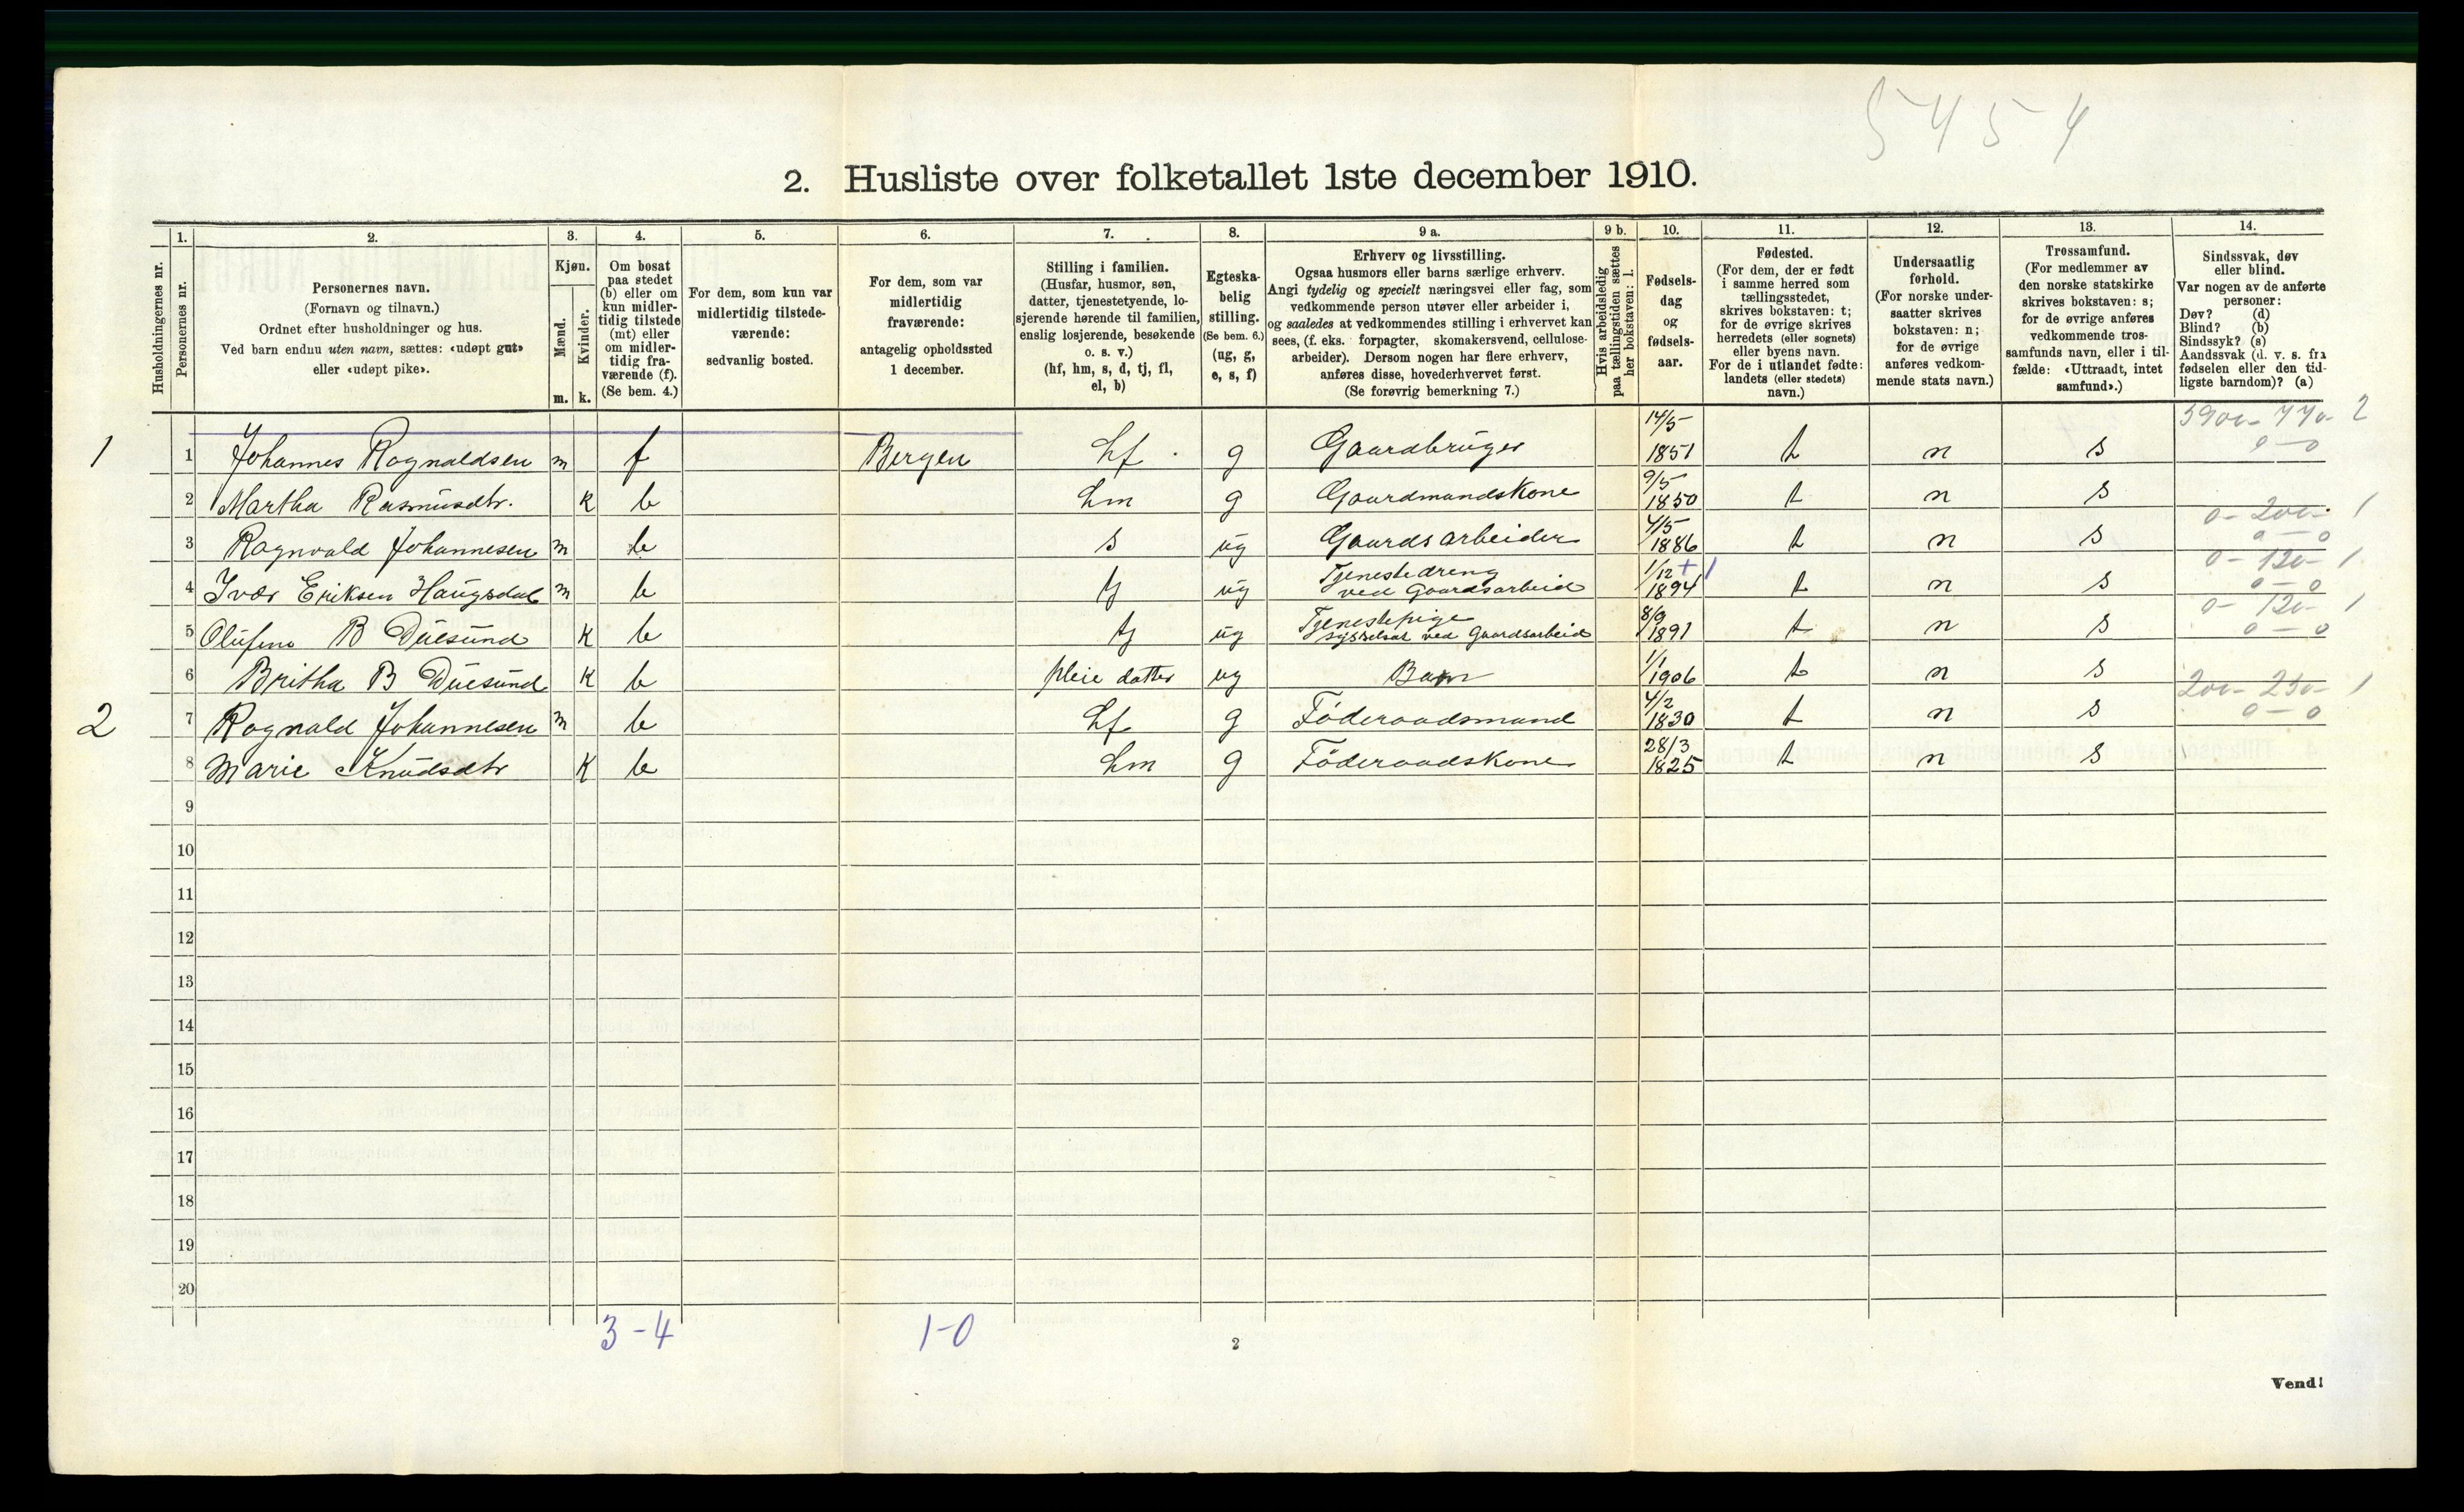 5454
2. Husliste over folketallet 1ste december 1910.
Husholdningernes nr.
1.
Personernes nr.
2.
Personernes navn.
(Fornavn og tilnavn.)
Ordnet efter husholdninger og hus.
Ved barn endnu uten navn, sættes: «udøpt gut»
eller «udøpt pike».
3.
Kjøn.
Mænd.
Kvinder.
m. k.
4.
Om bosat
paa stedet
(b) eller om
kun midler-
tidig tilstede
(mt) eller
om midler-
tidig fra-
værende (f).
(Se bem. 4.)
5.
For dem, som kun var
midlertidig tilstede-
værende:
sedvanlig bosted.
6.
For dem, som var
midlertidig
fraværende:
antagelig opholdssted
1 december.
7.
Stilling i familien.
(Husfar, husmor, søn,
datter, tjenestetyende, lo-
sjerende hørende til familien,
enslig losjerende, besøkende
o. s. v.)
(hf, hm, s, d, tj, fl,
el, b)
8.
Egteska-
belig
stilling.
(Se bem. 6.)
(ug, g,
e, s, f)
9 a.
Erhverv og livsstilling.
Ogsaa husmors eller barns særlige erhverv.
Angi tydelig og specielt næringsvei eller fag, som
vedkommende person utøver eller arbeider i,
og saaledes at vedkommendes stilling i erhvervet kan
sees, (f. eks. forpagter, skomakersvend, cellulose-
arbeider). Dersom nogen har flere erhverv,
anføres disse, hovederhvervet først.
(Se forøvrig bemerkning 7.)
9 b.
Hvis arbeidsledig
paa tællingstiden sættes
her bokstaven: l.
10.
Fødsels-
dag
og
fødsels-
aar.
11.
Fødested.
(For dem, der er født
i samme herred som
tællingsstedet,
skrives bokstaven: t;
for de øvrige skrives
herredets (eller sognets)
eller byens navn.
For de i utlandet fødte:
landets (eller stedets)
navn.)
12.
Undersaatlig
forhold.
(For norske under-
saatter skrives
bokstaven: n;
for de øvrige
anføres vedkom-
mende stats navn.)
13.
Trossamfund.
(For medlemmer av
den norske statskirke
skrives bokstaven: s;
for de øvrige anføres
vedkommende tros-
samfunds navn, eller i til-
fælde: «Uttraadt, intet
samfund».)
14.
Sindssvak, døv
eller blind.
Var nogen av de anførte
personer:
Døv? (d)
Blind? (b)
Sindssyk? (s)
Aandssvak (d. v. s. fra
fødselen eller den tid-
ligste barndom)? (a)
1 1 Johannes Ragnaldsen m f Bergen hf g Gaardbruger 14/5 1851 t n s 3900- 770- 2 0-0
2 Martha Rasmusdtr. k b hm g Gaardmandskone 9/5 1850 t n s
3 Ragnvald Johannesen m b s ug Gaardsarbeider 4/5 1886 t n s 0- 200- 1 0-0
4 Ivar Eriksen Haugsdal m b tj ug Tjenestedreng ved Gaardsarbeid 1/12 1894 + 1 t n s 0- 120- 1 0-0
5 Olufine B Duesund k b tj ug Tjenestepige sysselsat ved Gaardsarbeid 8/9 1891 t n s 0- 120- 1 0-0
6 Britha B Duesund k b pleie datter ug Barn 1/1 1906 t n s
2 7 Ragnald Johannesen m b hf g Føderaadsmand 4/2 1830 t n s 200- 250- 1 0-0
8 Marie Knudsdtr k b hm g Føderaadskone 28/3 1825 t n s
9
10
11
12
13
14
15
16
17
18
19
20
3-4 1-0
2
Vend!